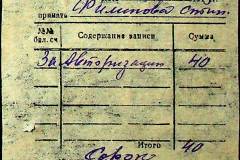 принять Филиппова
№№ бал. сч. Содержание записи Сумма
За Авторизации 40
Итого 40
Сорок